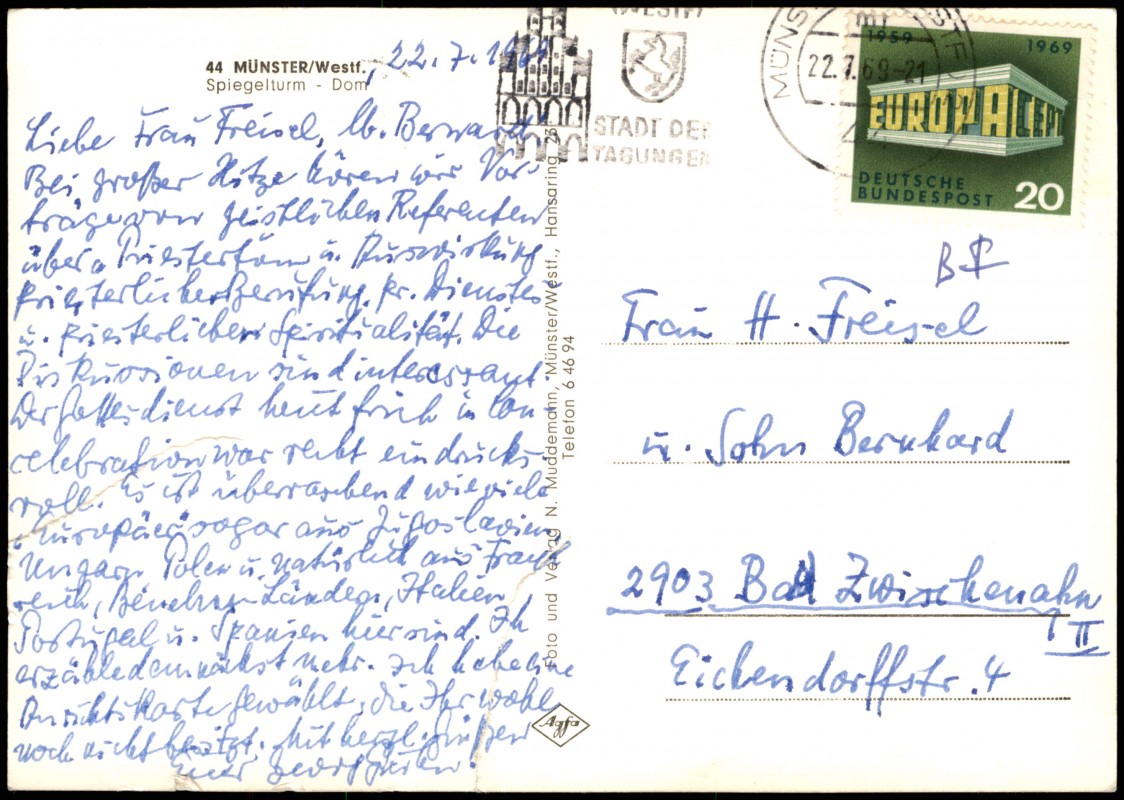 44 MÜNSTER/Westf.
Spiegelturm - Dom
22.7.1969
Liebe Frau Freisel, lb. Bernhard
Bei großer Hitze hören wir Vor-
träge von geistlichen Referenten
über Priestertum u. Auswirkung
priesterlicher Berufung, pr. Dienstes
u. priesterlicher Spiritualität. Die
Diskussionen sind interessant.
Der Gottesdienst heut früh in Con-
celebration war recht eindrucks-
voll. Es ist überraschend wieviele
"Europäer" sogar aus Jugoslavien
Ungarn Polen u. natürlich aus Frank
reich, Benelux-Länder, Italien,
Portugal u. Spanien hier sind. Ich
erzähle demnächst mehr. Ich habe eine
Ansichtskarte gewählt, die Ihr wohl
noch nicht besitzt. Mit herzl. Grüßen
Euer Georg
Foto und Verlag N. Muddemann, Münster/Westf., Hansaring 23
Telefon 6 46 94
Agfa
(WESTF)
STADT DER
TAGUNGEN
MÜNS
STF
22.7.69-21
1959
1969
EUROPA CEPT
DEUTSCHE
BUNDESPOST
20
Frau H. Freisel
u. Sohn Bernhard
2903 Bad Zwischenahn
II
Eichendorffstr. 4